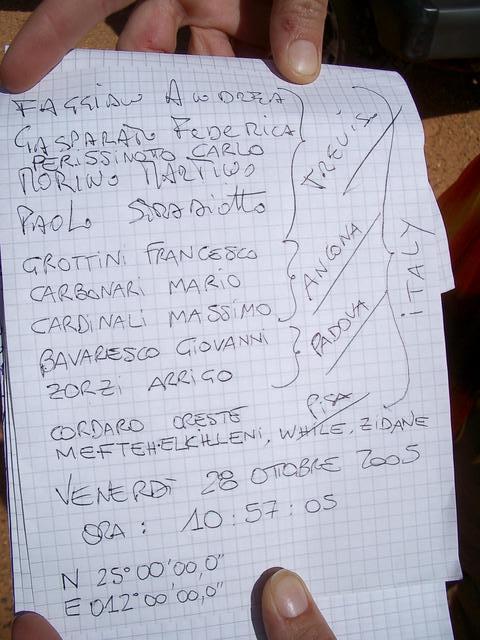 FAGGIAN ANDREA
GASPARATO FEDERICA
PERISSINOTTO CARLO
MORINO MARTINO
PAOLO
TREVISO
GROTTINI FRANCESCO
CARBONARI MARIO
CARDINALI MASSIMO
ANCONA
BAVARESCO GIOVANNI
ZORZI ARRIGO
PADOVA
ITALY
CORDARO ORESTE
PISA
MEFTEH-ELKHLENI, WHILE, ZIDANE
VENERDÌ 28 OTTOBRE 2005
ORA : 10:57:05
N 25°00'00,0"
E 012°00'00,0"